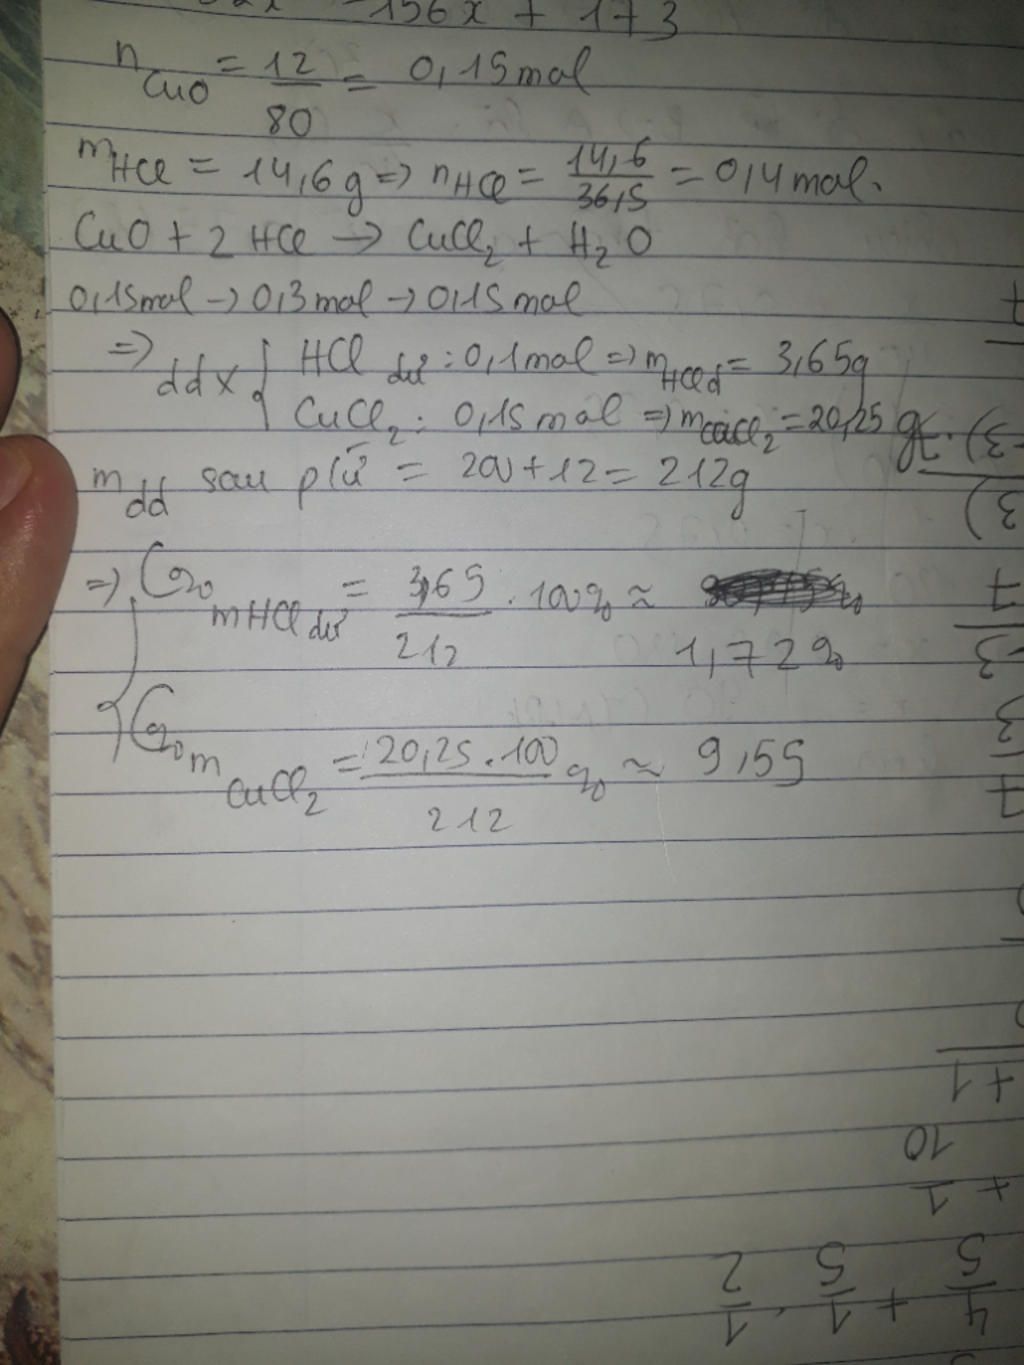 156x + 173
n CuO = 12/80 = 0,15mol
mHCl = 14,6g => nHCl = 14,6/36,5 = 0,4mol.
CuO + 2 HCl -> CuCl2 + H2O
0,15mol -> 0,3mol -> 0,15mol
=> ddX { HCl dư : 0,1mol => mHCl d = 3,65g
CuCl2 : 0,15mol => mCuCl2 = 20,25 g
mdd sau pứ = 200 + 12 = 212g
=> { C% mHCl dư = 3,65/212 . 100% ≈
1,72%
C% m CuCl2 = 20,25.100/212 % ≈ 9,55
+1
10
+ 1
4/5 + 1/5 . 1/2